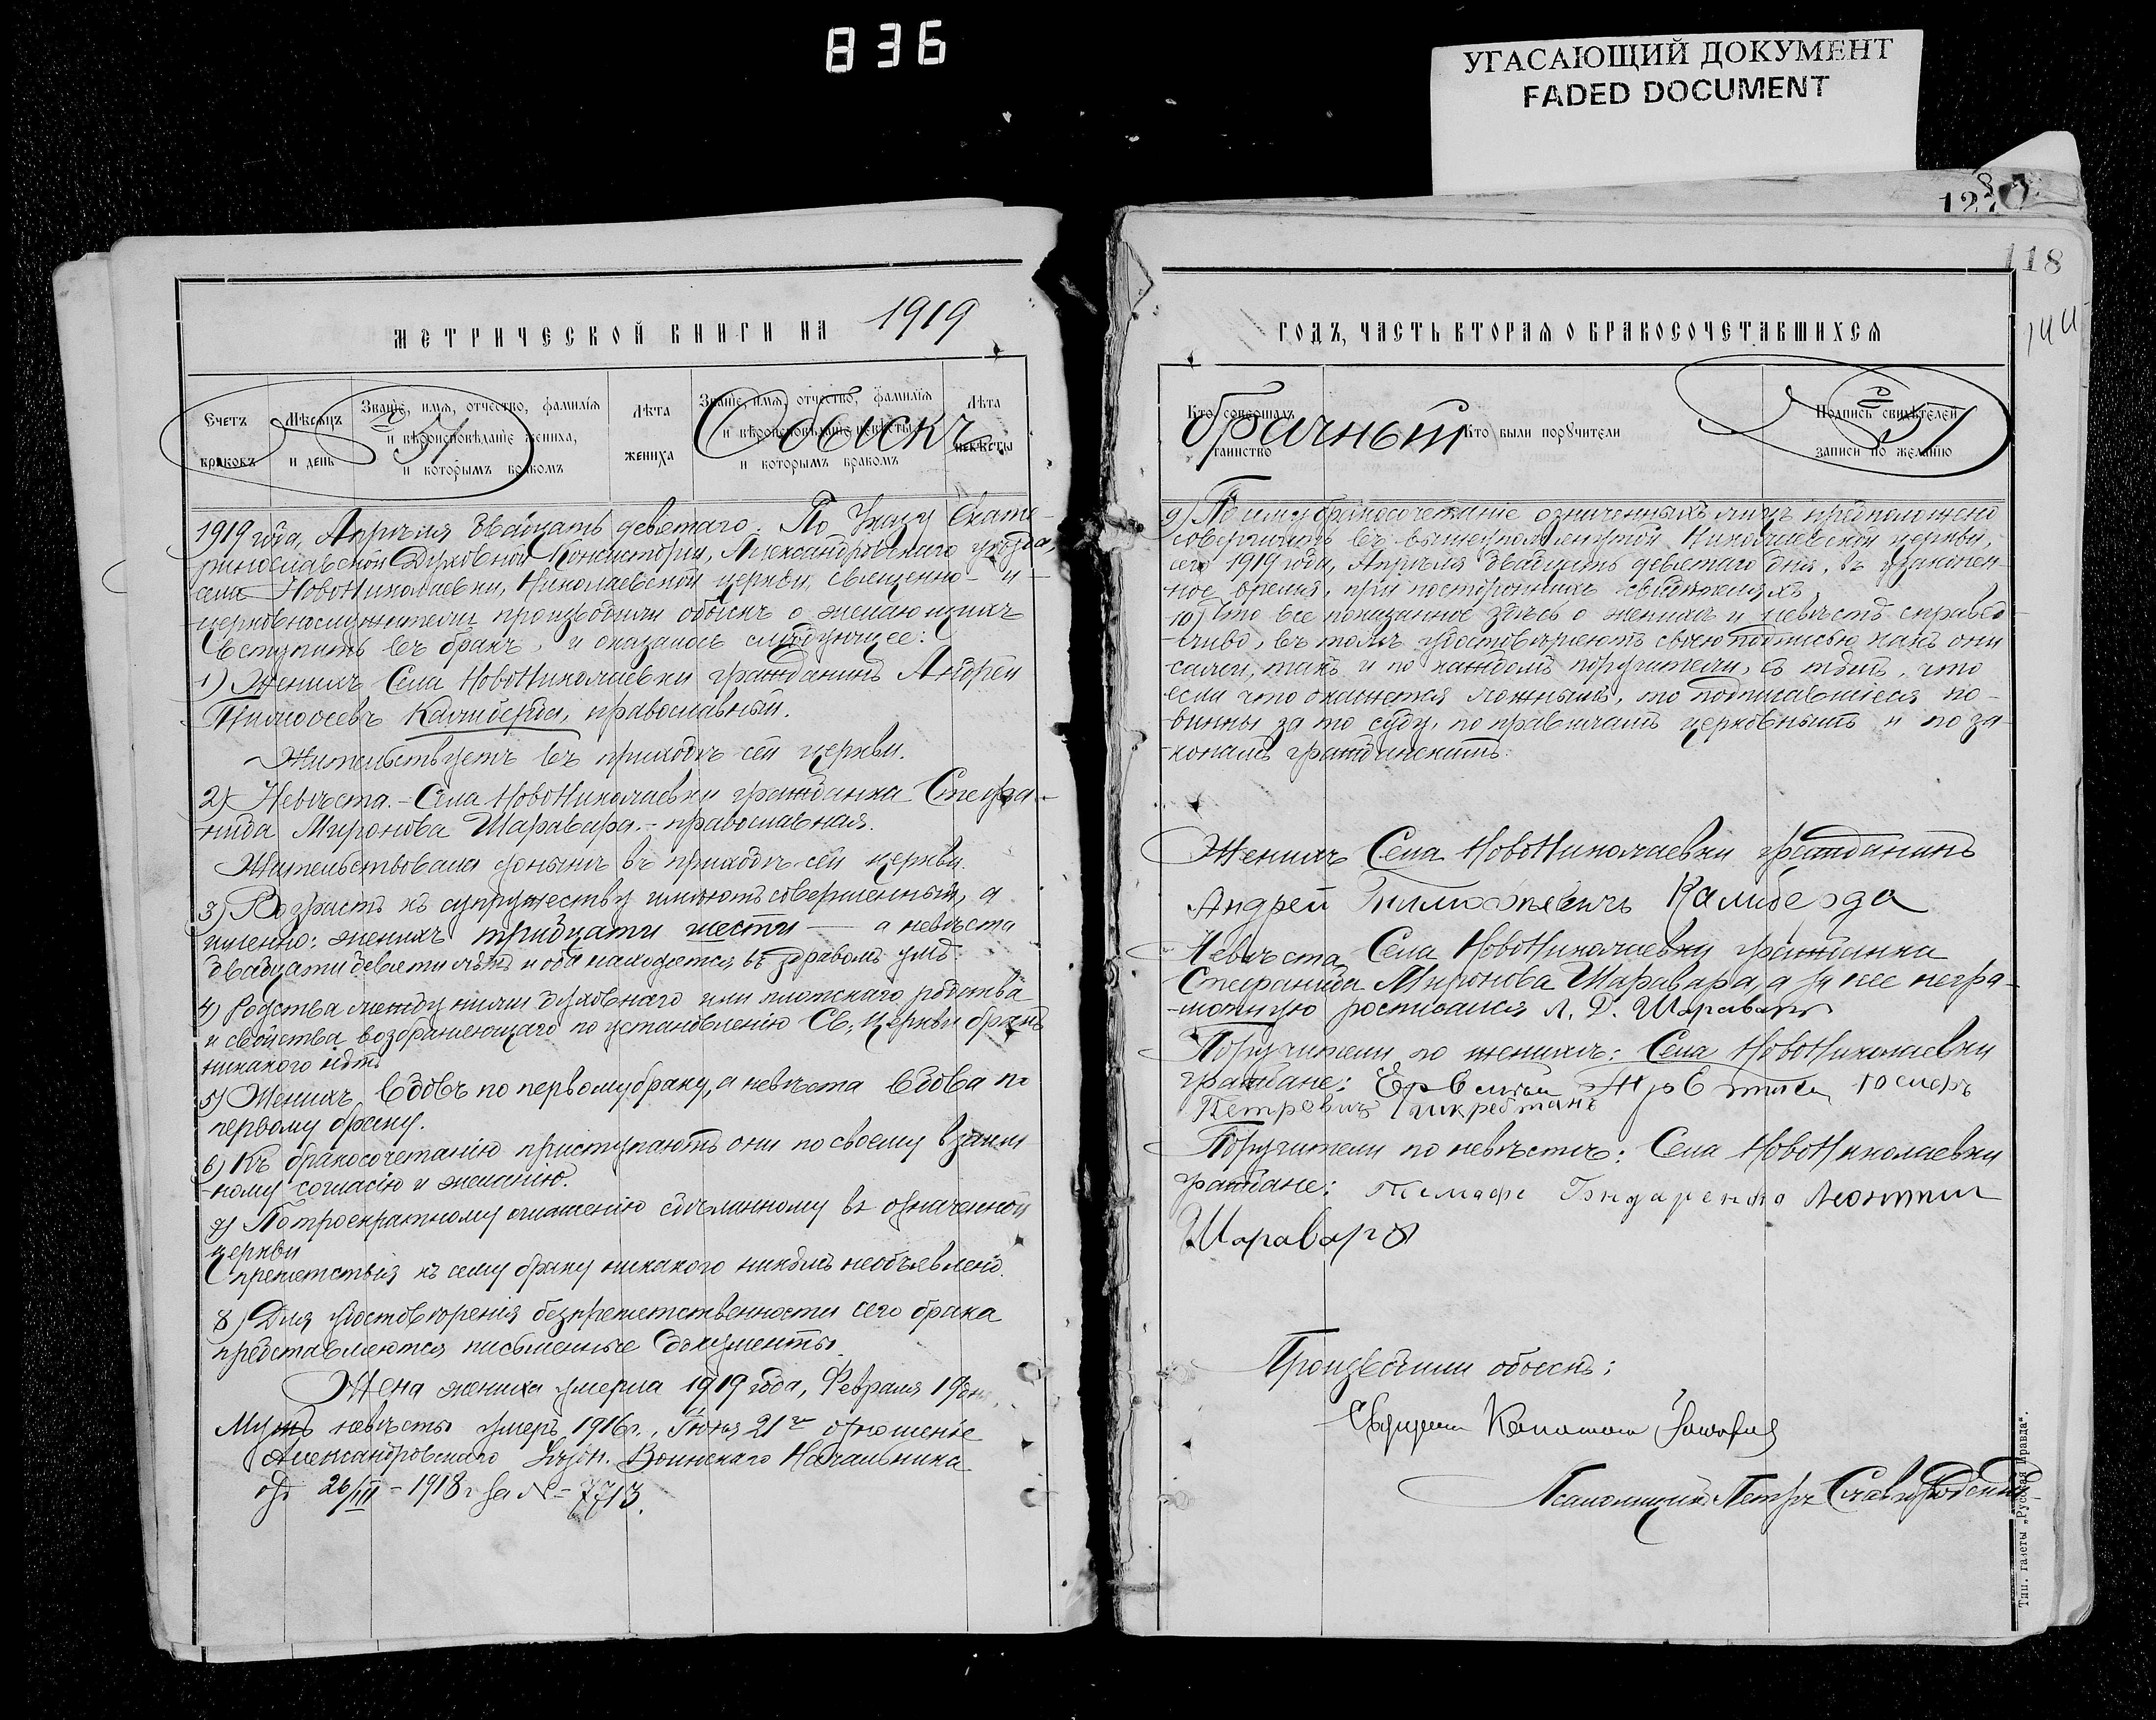 836
УГАСАЮЩИЙ ДОКУМЕНТ
FADED DOCUMENT
118
МЕТРИЧЕСКОЙ КНИГИ НА 1919
Счетъ браковъ
Мѣсяцъ и день
Званіе, имя, отчество, фамилія и вѣроисповѣданіе жениха, и которымъ бракомъ
Лѣта жениха
Званіе, имя, отчество, фамилія и вѣроисповѣданіе невѣсты, и которымъ бракомъ
Лѣта невѣсты
51
Обыскъ
1919 года, Апрѣля двадцать девятаго. По Указу Екате-
ринославской Духовной Консисторіи, Александровскаго уѣзда,
села НовоНиколаевки, Николаевской церкви, священно- и
церковнослужители производили обыскъ о желающихъ
вступить въ бракъ, и оказалось слѣдующее:
1) Женихъ Села НовоНиколаевки гражданинъ Андрей
Тимоѳеевъ Калиберда, православный.
Жительствуетъ въ приходѣ сей церкви.
2) Невѣста. – Села НовоНиколаевки гражданка Стефа-
нида Миронова Шаравара. – православная.
Жительствовала донынѣ въ приходѣ сей церкви.
3) Возрастъ къ супружеству имѣютъ совершенный, а
именно: женихъ тридцати шести — а невѣста
двадцати девяти лѣтъ и оба находятся въ здравомъ умѣ.
4) Родства между ними духовнаго или плотскаго родства
и свойства, возбраняющаго по установленію Св. Церкви бракъ
никакого нѣтъ
5) Женихъ вдовъ по первому браку, а невѣста вдова по
первому браку.
6) Къ бракосочетанію приступаютъ они по своему взаим-
ному согласію и желанію.
7) По троекратному оглашенію сдѣланному въ означенной
церкви
препятствія къ сему браку никакого никѣмъ необъявлено.
8) Для удостовѣренія безпрепятственности сего брака
представляются письменные документы
Жена жениха умерла 1919 года, Февраля 19
Мужъ невѣсты умеръ 1916 г., Іюня 21го отношеніе
Александровскаго Уѣздн. Воинскаго Начальника
отъ 26/III – 1918 г за № 7713.
ГОДЪ, ЧАСТЬ ВТОРАЯ О БРАКОСОЧЕТАВШИХСЯ
Кто совершалъ таинство
Кто были поручители
Подпись свидѣтелей записи по желанію
брачный
51
9) По сему бракосочетаніе означенныхъ лицъ предположено
совершить въ вышеупомянутой Николаевской церкви,
сего 1919 года, Апрѣля двадцать девятаго дня, въ узаконен-
ное время, при постороннихъ свидѣтеляхъ
10) Что все показанное здѣсь о женихѣ и невѣстѣ справед-
ливо, въ томъ удостовѣряютъ своею подписью какъ они
сами, такъ и по каждомъ поручители, съ тѣмъ, что
если что окажется ложнымъ, то подписавшіеся по-
винны за то суду, по правиламъ церковнымъ и по за-
конамъ гражданскимъ.
Женихъ Села НовоНиколаевки гражданинъ
Андрей Тимофѣевичъ Калиберда
Невѣста Села НовоНиколаевки гражданка
Стефанида Миронова Шаравара, а за нее негра-
мотную росписался Л. Д. Шаравара
Поручители по женихѣ: Села НовоНиколаевки
граждане:
Петровичъ
Поручители по невѣстѣ: Села НовоНиколаевки
граждане: Бондаренко Леонтии
Шаравара
Произвѣвшіи обыскъ:
Псаломщикъ Петръ
Тип. газеты „Русская Правда“.